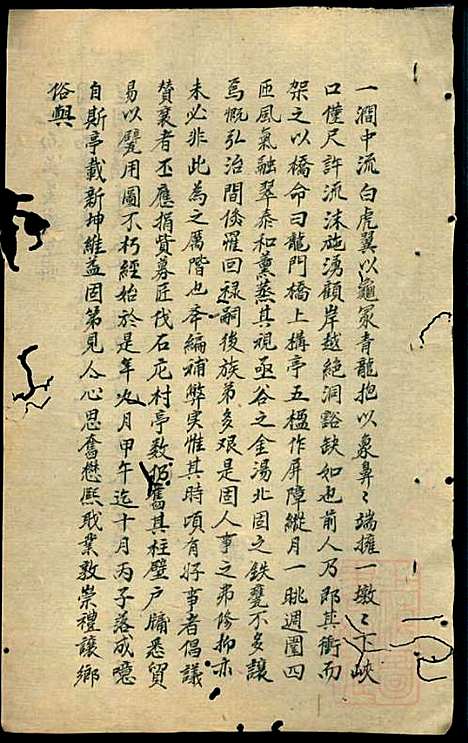 一澗中流白虎翼以龜冢青龍抱以象鼻〻端擁一墩〻下峽
口僅尺許流沫施湧顧岸越絕洞豁缺如也前人乃即其衝而
架之以橋命曰龍門橋上構亭五楹作屏障縱月一眺週圍四
匝風氣融翠泰和薰蒸其視函谷之金湯北固之鉄甕不多讓
焉慨弘治間倏罹回祿嗣後族弟多艱是固人事之弗降抑亦
未必非此為之厲階也奉編補弊実惟其時頃有好事者倡議
贊襄者丕應捐貲募匠伐石庀材亭数仍舊其柱壁戶牖悉貿
易以甓用圖不朽經始於是年火月甲午迄十月丙子落成噫
自斯亭載新坤維益固第見人心思奮懋熙戢業敦崇禮讓鄉
俗與